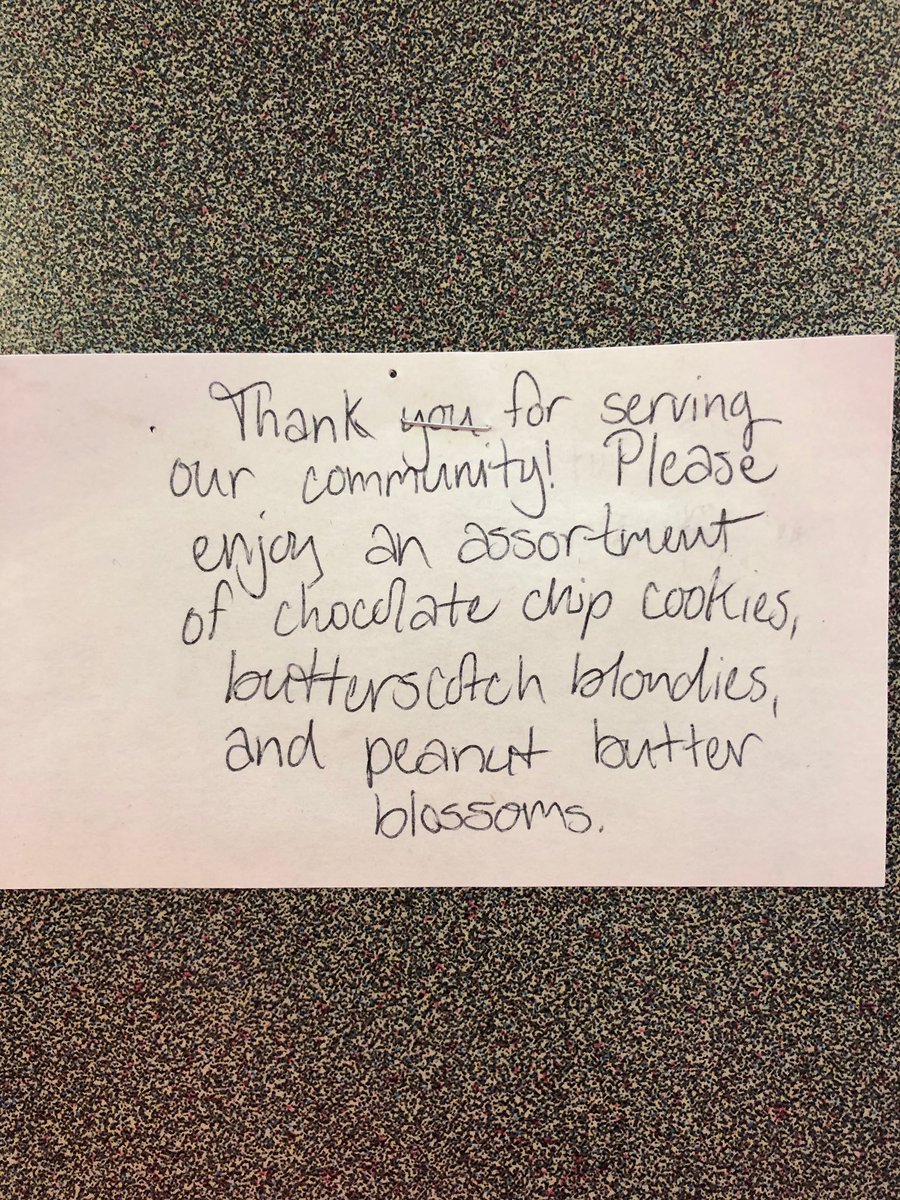 Thank you for serving
our community! Please
enjoy an assortment
of chocolate chip cookies,
butterscotch blondies,
and peanut butter
blossoms.